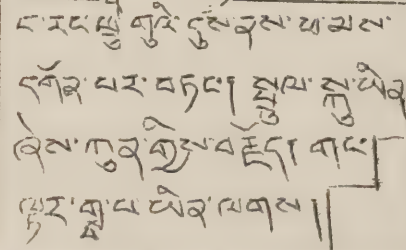 ང་རང་ཕྲུ་གུའི་དུས་ནས་ཕ་མས་
དགོན་པར་བཏང་། སྤྲུལ་སྐུ་ཡིན
ཞེས་ཀུན་གྱིས་བརྗོད། གང་
ལྟར་གྲྭ་པ་ཡིན་ལགས།